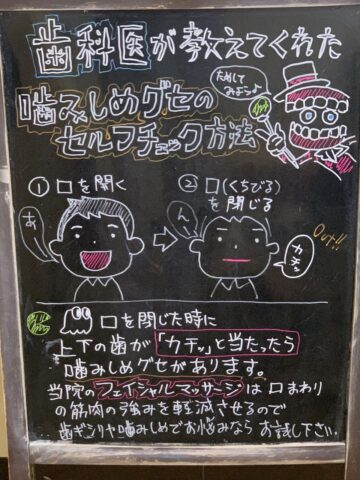 歯科医が教えてくれた
ためして
みギョよ
噛みしめグセの
セルフチェック方法
① 口を開く
② 口(くちびる)
を閉じる
あ
ん
Out!!
カチッ
口を閉じた時に
上下の歯が「カチッ」と当たったら
噛みしめグセがあります。
当院のフェイシャルマッサージは口まわり
の筋肉の強みを軽減させるので
歯ギシリや噛みしめでお悩みなら お試し下さい。